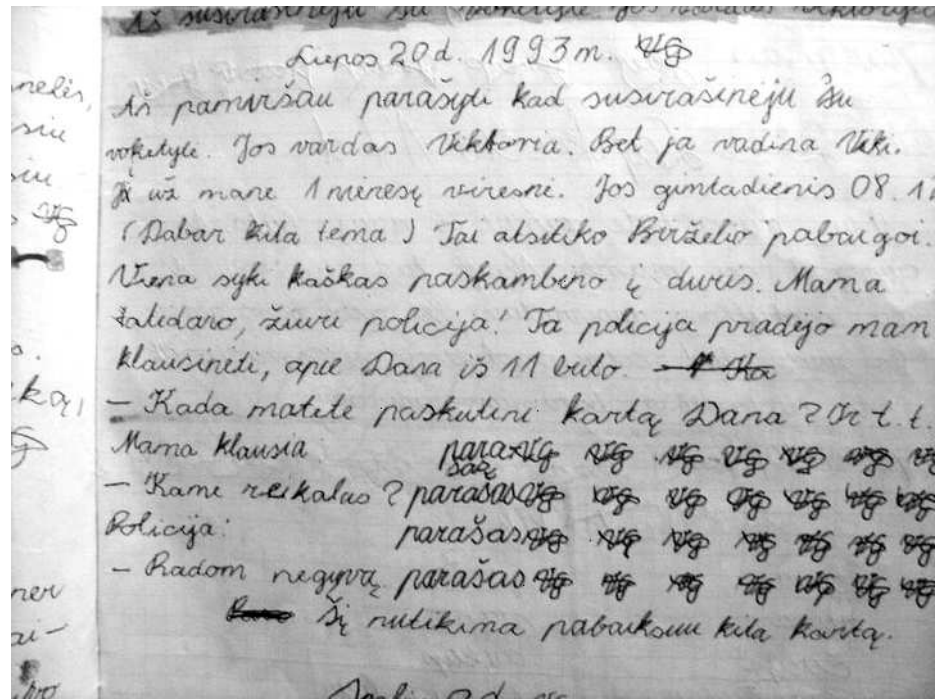 Aš susirašinėju su vokietyte Jos vardas Viktorija
Liepos 20 d. 1993 m. VG
Aš pamiršau parašyti kad susirašinėju su
vokietyte. Jos vardas Viktoria. Bet ja vadina Viki.
Ji už mane 1 mėnesį viresnė. Jos gimtadienis 08.1
(Dabar kita tema) Tai atsitiko Birželio pabaigoi.
Viena syki kaškas paskambino į duris. Mama
žiuri policija! Ta policija pradėjo man
klausinėti, apie Dana iš 11 buto.
– Kada matėte paskutini kartą Dana? Ir t. t.
Mama klausia paraVG VG VG VG VG VG VG
šas
– Kame reikalas? parašas VG VG VG VG VG VG VG
Policija: parašas VG VG VG VG VG VG VG
– Radom negyvą parašas VG VG VG VG VG VG VG
Šį nutikima pabaiksiu kita kartą.
nelės,
siu
siu
VG
ką,
ner
ai-